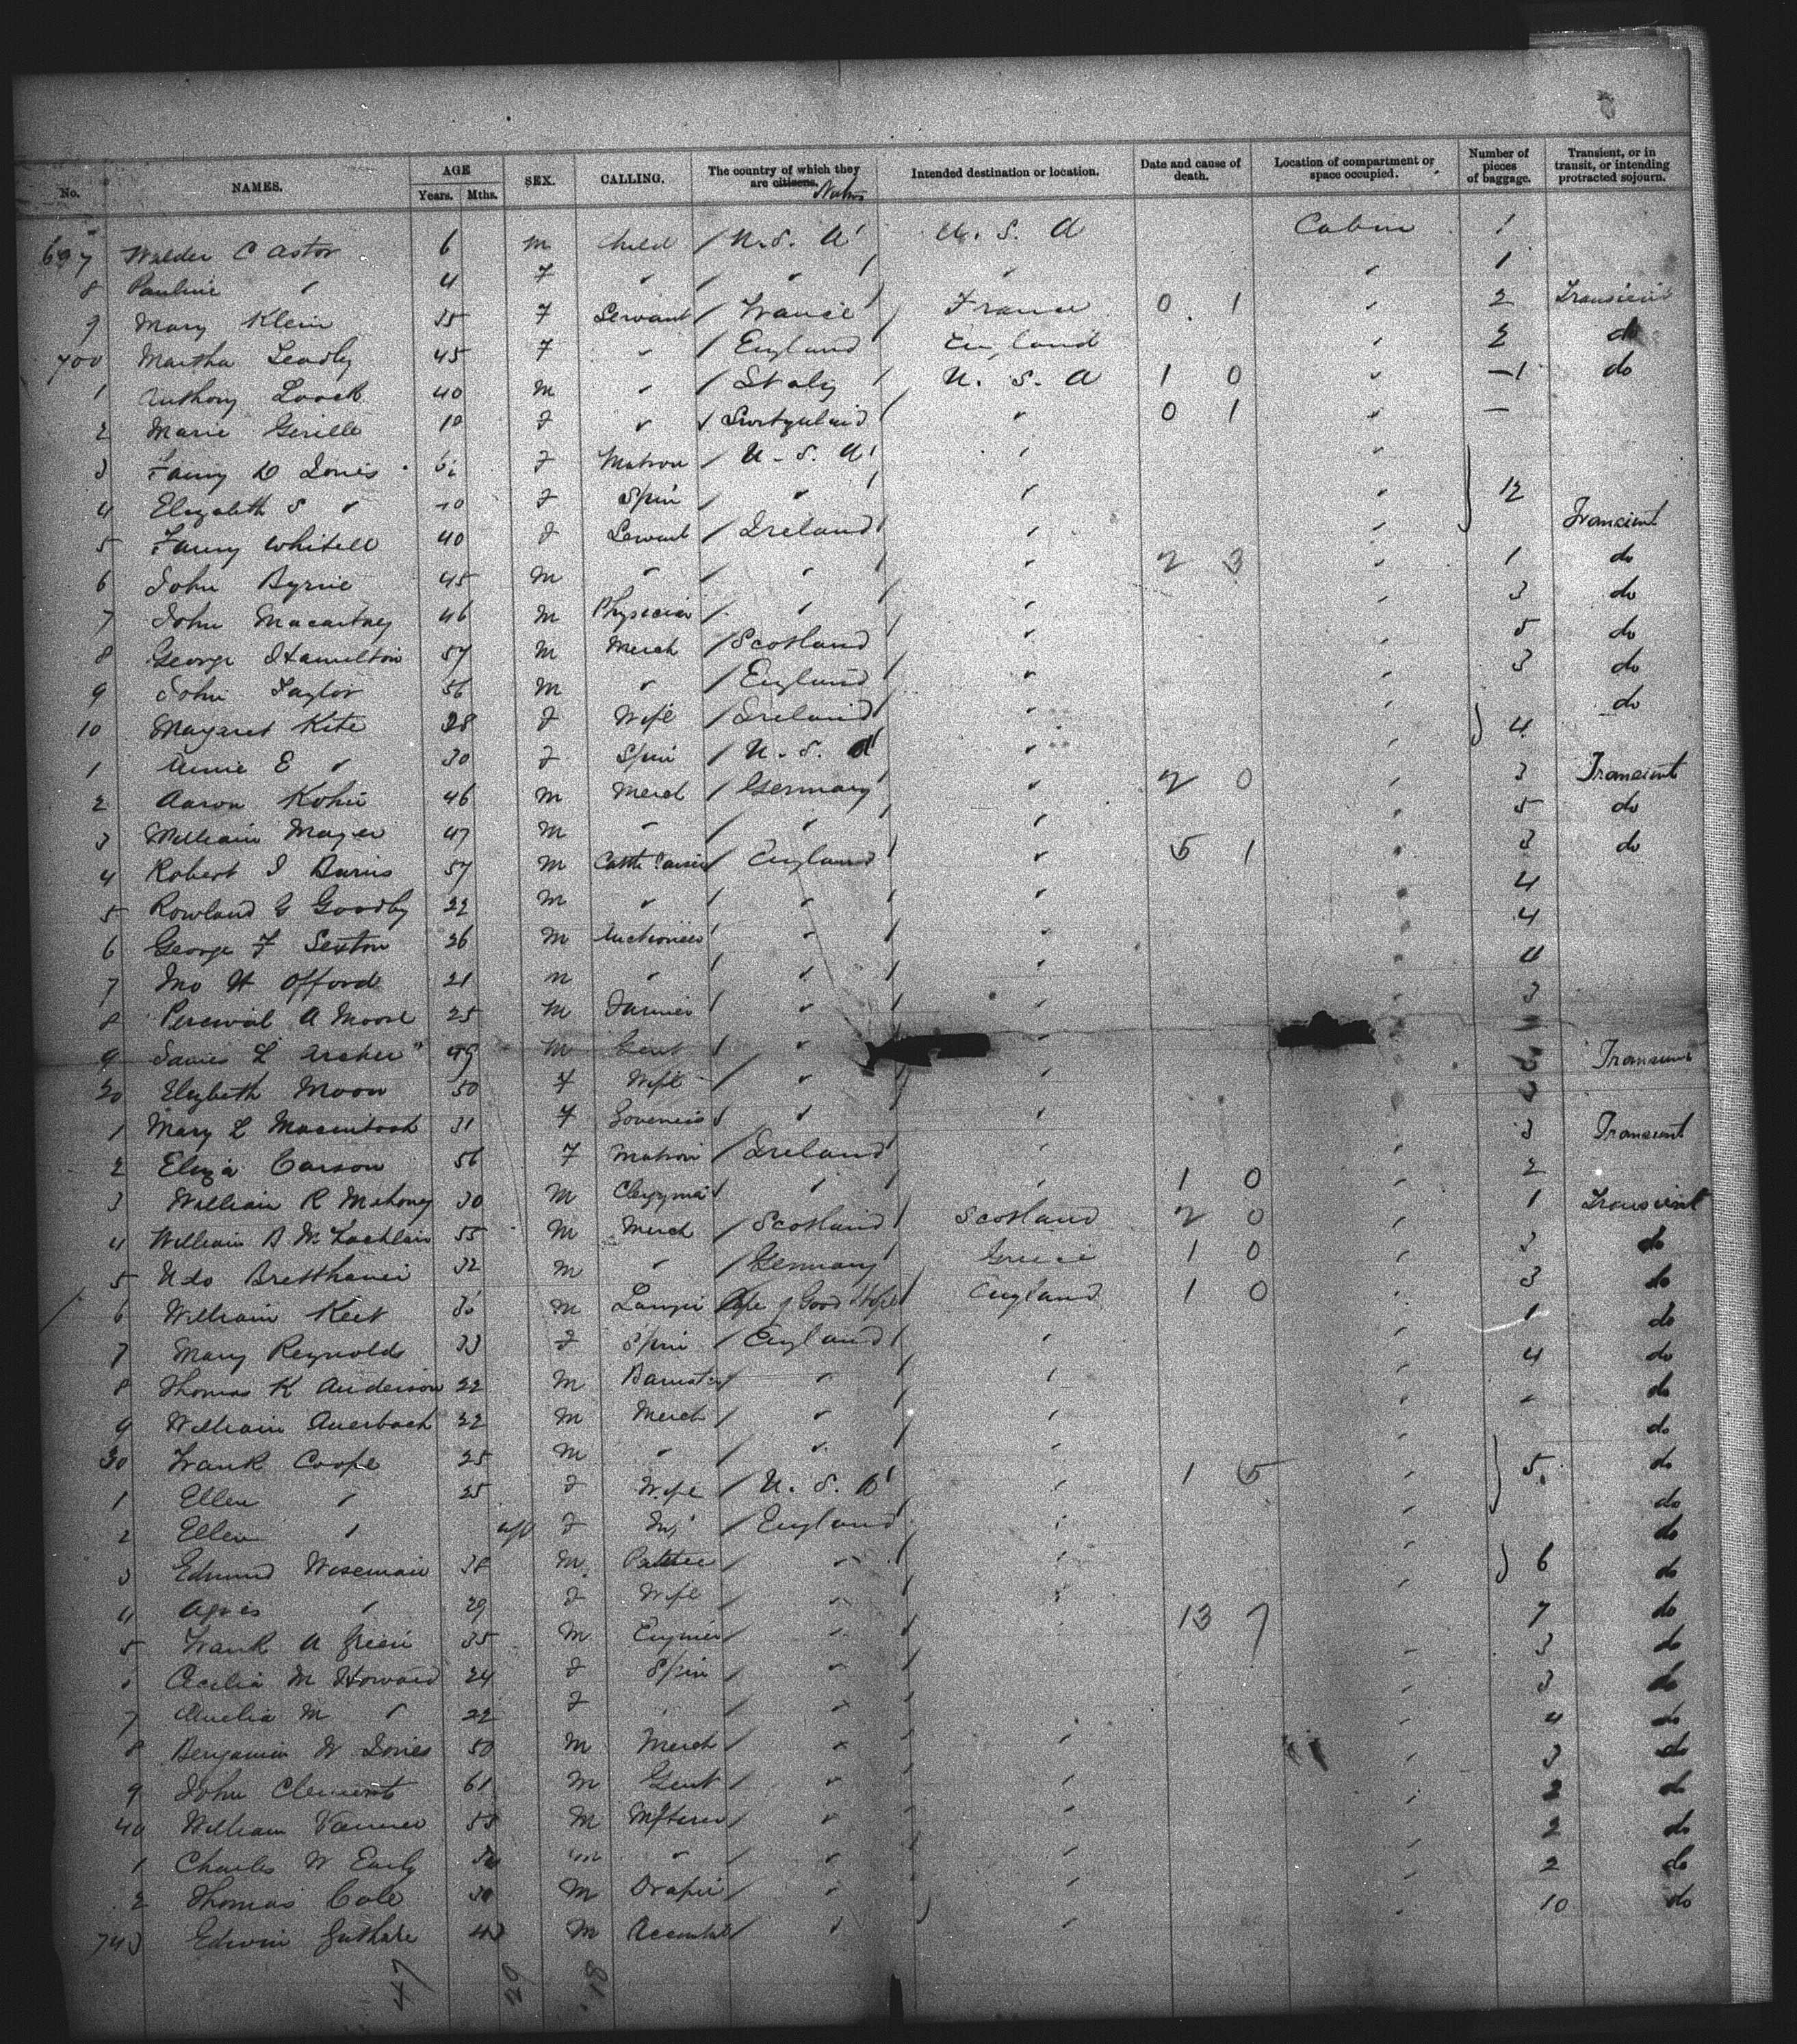 No. NAMES. AGE Years. Mths. SEX. CALLING. The country of which they are citizens. Natives Intended destination or location. Date and cause of death. Location of compartment or space occupied. Number of pieces of baggage. Transient, or in transit, or intending protracted sojourn.
697 C Astor 6 m Child / U.S. A U. S. A Cabin 1
8 Pauline " 4 F " / " " " 1
9 Mary Klein 35 F Servant / France France 0 1 " 2 Transient
700 Martha 45 F " / England England " 2 do
1 Anthony 40 m " / Italy U. S. A 1 0 " — 1 do
2 Marie F " / Switzerland " 0 1 " —
3 Fanny D Jones F Matron / U. S. A " "
4 Elizabeth S " F Spin / " " " 12
5 Fanny 40 F Servant / Ireland " " Transient
6 John Byrne 45 m " / " " 2 3 " 1 do
7 John Macartney 46 m Physician / " " " 3 do
8 George Hamilton 57 m Merch / Scotland " " 5 do
9 John Taylor 56 m " / England " " 3 do
10 Margaret Kite 28 F Wife / Ireland " " do
1 Annie E " 30 F Spin / U. S. A " " 4
2 Aaron 46 m Merch / Germany " 2 0 " 3 Transient
3 William Mayer 47 m " / " " " 5 do
4 Robert 57 m Cattle / England " 5 1 " 3 do
5 Rowland G 22 m " / " " " 4
6 George F Sexton 26 m Auctioneer / " " " 4
7 Jno H Offord 21 m " / " " " 4
8 Percival A Moore 25 m Farmer / " " " 3
9 James L Archer 49 m Gent / " "
20 Elizbeth Moon 50 F Wife / " " " 3 Transient
1 Mary L Macintosh 31 F Governess / " " " 3
2 Eliza Carson 56 F Matron / Ireland " " 3 Transient
3 William R Mahoney 30 m Clergyman / " " 1 0 " 2
4 William McLachlan 55 m Merch / Scotland Scotland 2 0 " 1 Transient
5 Udo 32 m " / Germany 1 0 " 3 do
6 William Keet m Cape of Good Hope England 1 0 " 3 do
7 Mary Reynolds 33 F Spin / England " " 1 do
8 Thomas K Anderson 22 m Barrister / " " " 4 do
9 William Auerbach 22 m Merch / " " " - do
30 Frank Coope 25 m " / " " " do
1 Ellen " 25 F Wife / U. S. A " 1 5 " 5 do
2 Ellen " F Inf / England " " do
3 Edmund Wiseman 38 m / " " " do
4 Agnes " 29 F Wife / " " " 6 do
5 Frank A Green 35 m Engineer / " " 13 7 7 do
6 Cecilia M Howard 24 F Spin / " " 3 do
7 Amelia M " 22 F " " " 3 do
8 Benjamin W Jones 50 m Merch / " " " 4 do
9 John Clements 61 m Gent / " " " 3 do
40 William 58 m / " " " 2 do
1 Charles W Early m " / " " " 2 do
2 Thomas Cole 30 m Draper / " " " 2 do
743 Edwin 43 m Accountant / " " " 10 do
47 29 18